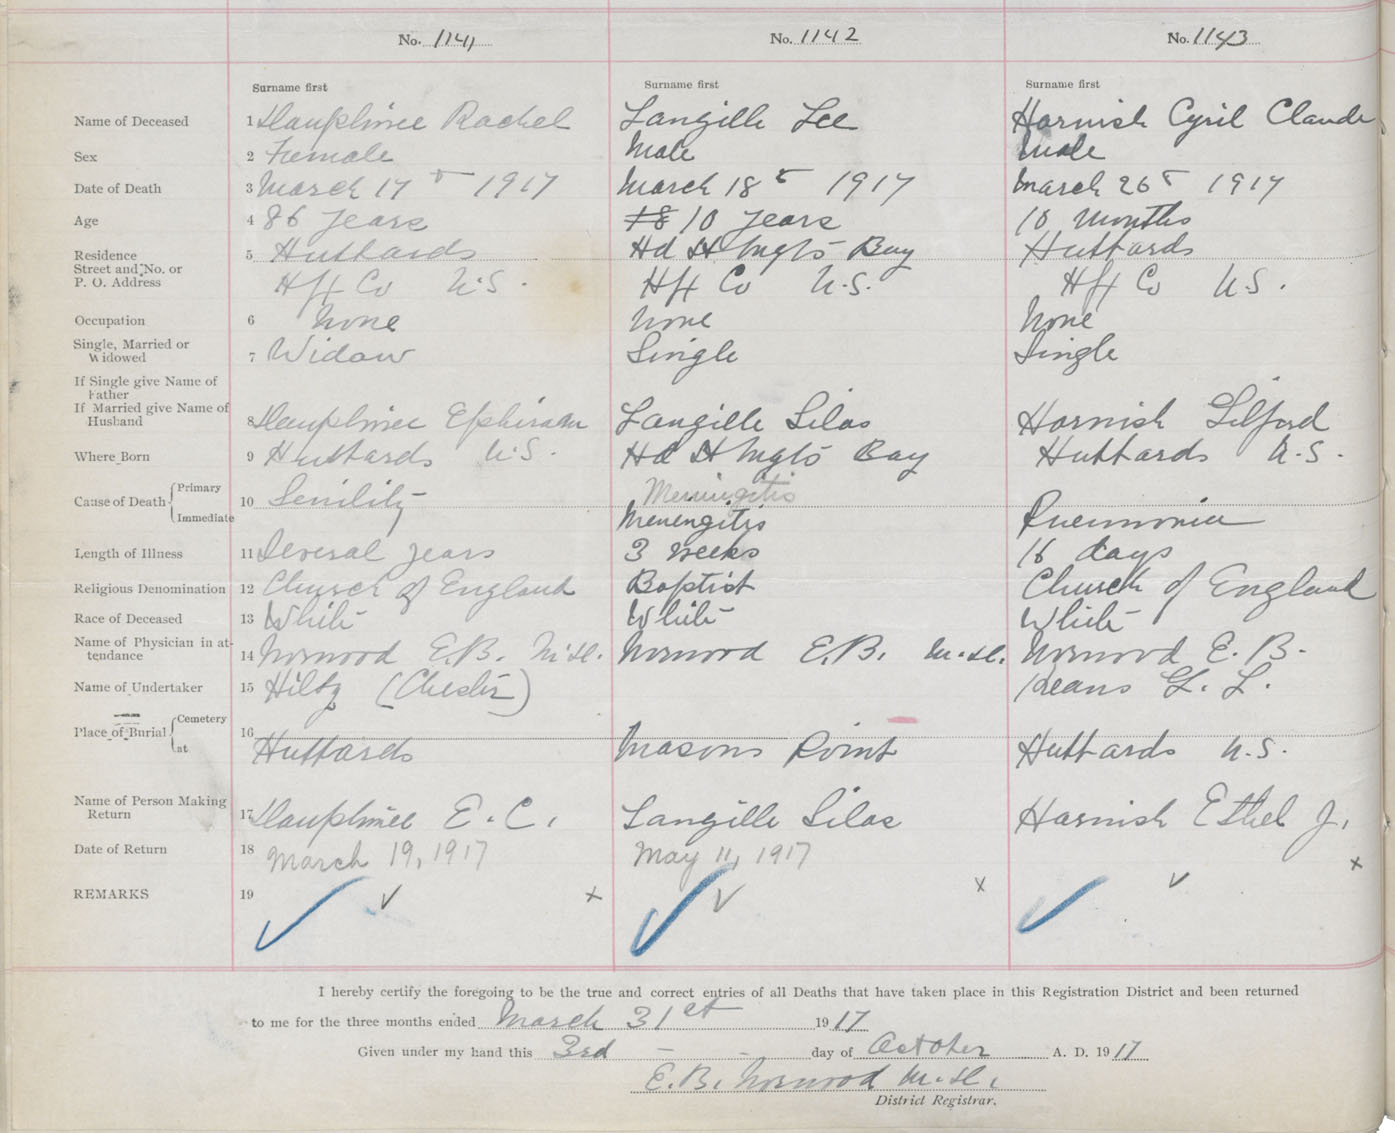 No. 1141 No. 1142 No. 1143
Surname first Surname first Surname first
Name of Deceased 1 Dauphinee Rachel Langille Lee Harnish Cyril Claude
Sex 2 Female Male Male
Date of Death 3 March 17th 1917 March 18th 1917 March 26th 1917
Age 4 86 years 18 10 years 10 months
Residence 5 Hubbards Hd St Mgts Bay Hubbards
Street and No. or
P. O. Address Hfx Co N.S. Hfx Co N.S. Hfx Co N.S.
Occupation 6 None None None
Single, Married or
Widowed 7 Widow Single Single
If Single give Name of
Father
If Married give Name of
Husband 8 Dauphinee Ephiram Langille Silas Harnish Gilford
Where Born 9 Hubbards N.S. Hd St Mgts Bay Hubbards N.S.
Cause of Death Primary 10 Senility Meningitis
Immediate Menengitis Pneumonia
Length of Illness 11 Several years 3 weeks 16 days
Religious Denomination 12 Church of England Baptist Church of England
Race of Deceased 13 White White White
Name of Physician in at-
tendance 14 Norwood E.B. M.D. Norwood E.B. M.D. Norwood E.B.
Name of Undertaker 15 Hiltz (Chester) Keans G. L.
Place of Burial Cemetery 16
at Hubbards Masons Point Hubbards N.S.
Name of Person Making
Return 17 Dauphinee E.C. Langille Silas Harnish Ethel J.
Date of Return 18 March 19, 1917 May 11, 1917
REMARKS 19 ✓ ✓ x ✓ ✓ x ✓ ✓ x
I hereby certify the foregoing to be the true and correct entries of all Deaths that have taken place in this Registration District and been returned
to me for the three months ended March 31st 1917
Given under my hand this 3rd - - day of October A. D. 1917
E.B. Norwood M.D.
District Registrar.